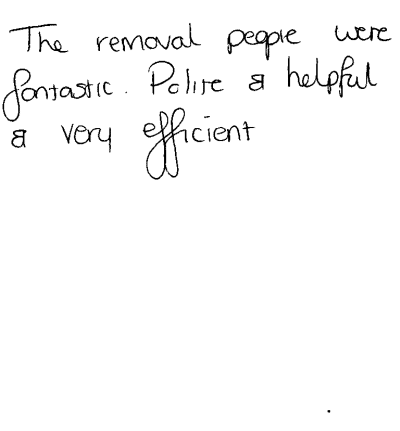 The removal people were
fantastic. Polite & helpful
& very efficient